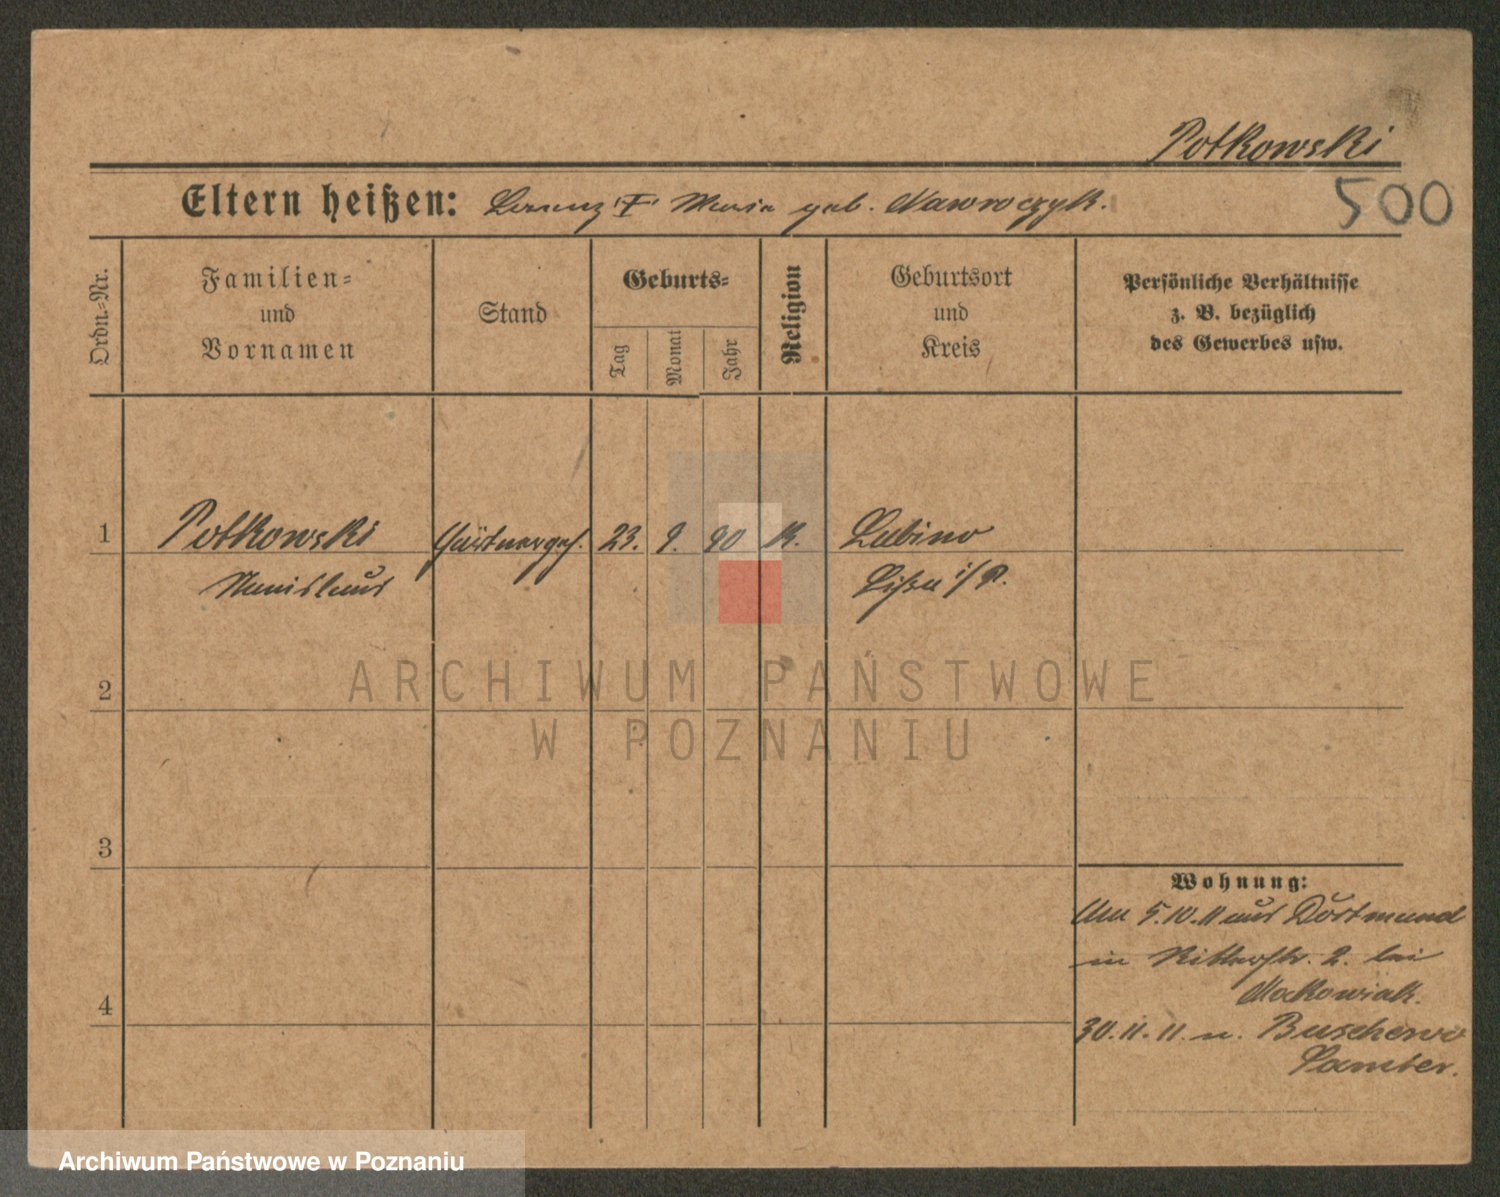 Potkowski
500
Eltern heißen: Lorenz "I" Maria geb. Nawroczyk.
Ordn.-Nr.
Familien- und Vornamen
Stand
Geburts-
Tag
Monat
Jahr
Religion
Geburtsort und Kreis
Persönliche Verhältnisse
z. B. bezüglich
des Gewerbes usw.
1 Potkowski Gärtnergeh. 23. 9. 90 K. Lubino
Stanislaus Lissa i/P.
2
ARCHIWUM PAŃSTWOWE
W POZNANIU
3
Wohnung:
Am 5.10.11 aus Dortmund
in Ritterstr. 2. bei
Maćkowiak.
4
30.11.11. n. Buschewo
Samter.
Archiwum Państwowe w Poznaniu